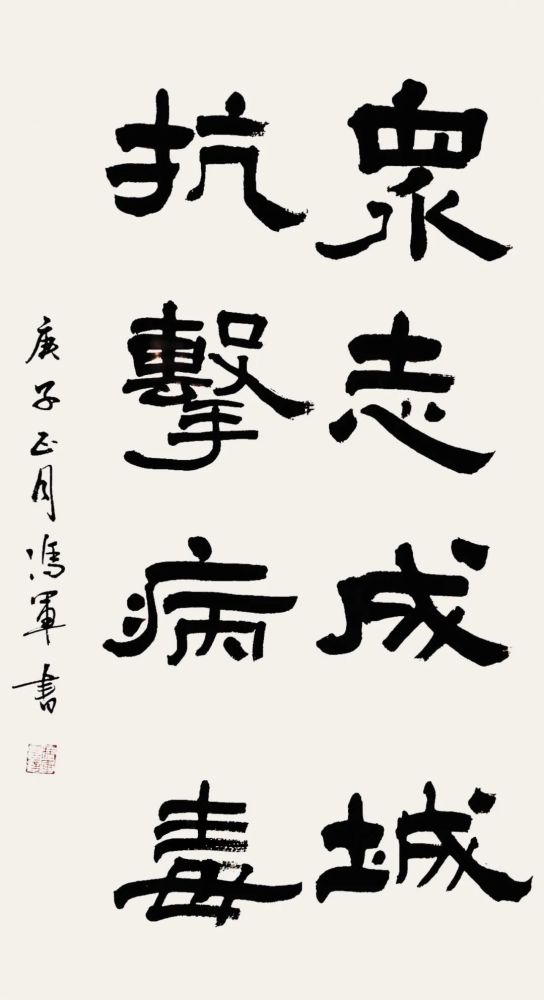 眾志成城
抗擊病毒
庚子正月馮軍書